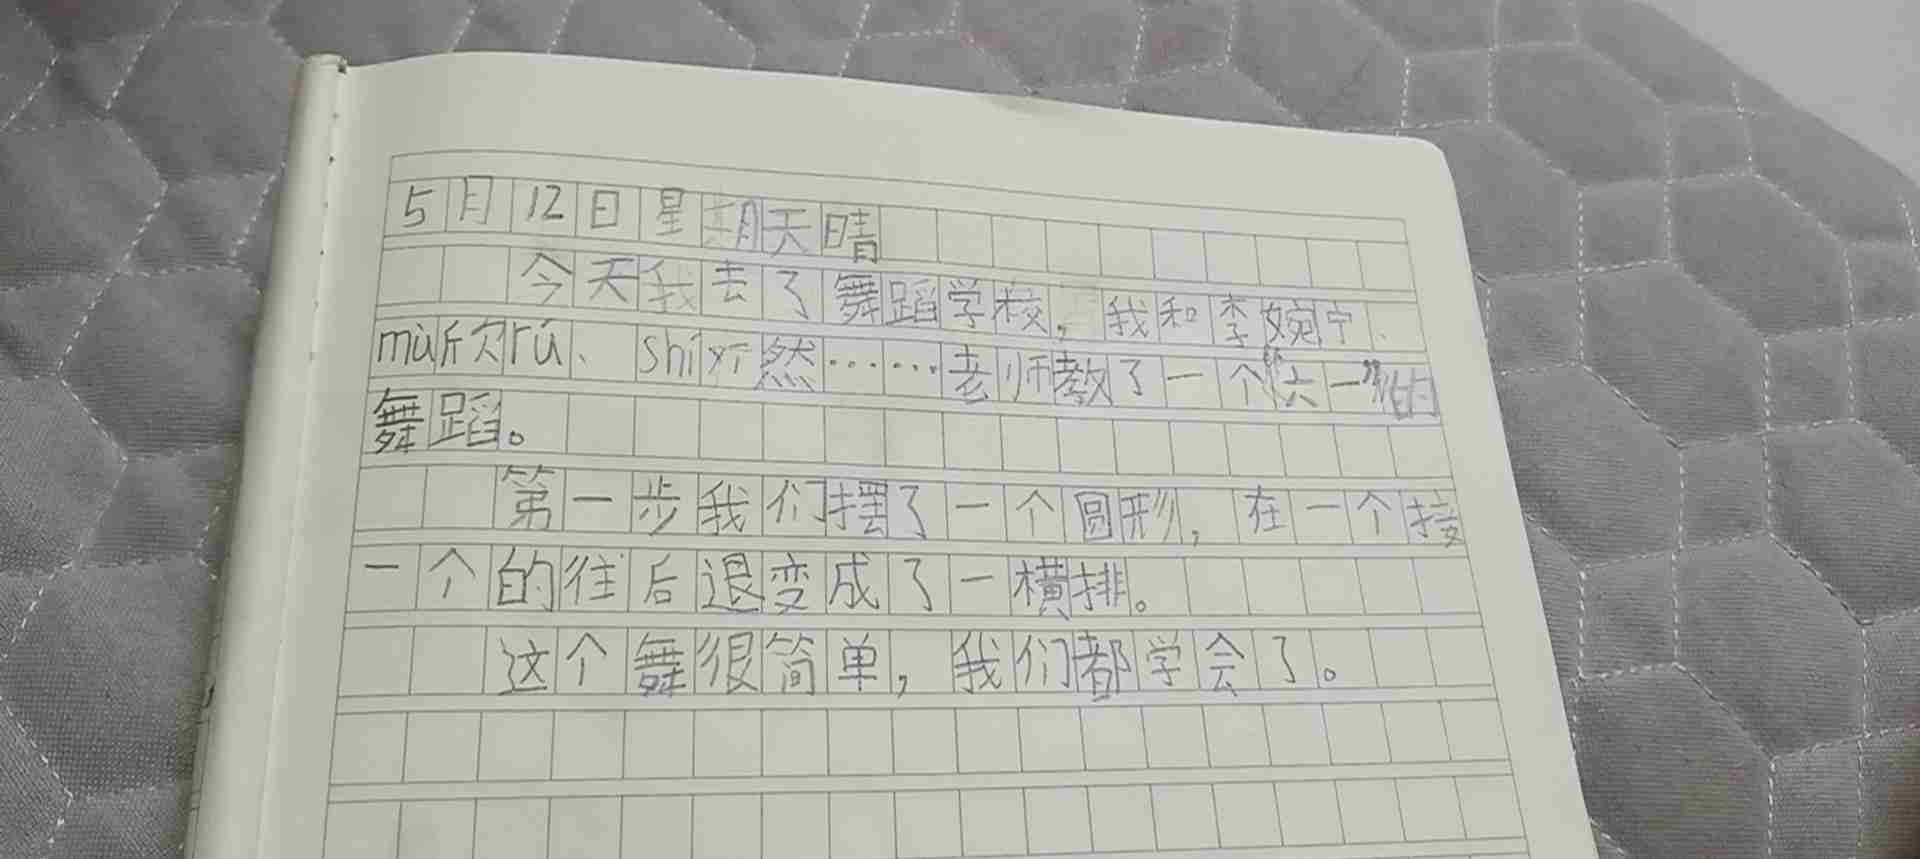 5月12日星期天晴
今天我去了舞蹈学校,我和李婉宁、
mù欣rú、shí欣然……老师教了一个“六一”的
舞蹈。
第一步我们摆了一个圆形,在一个接
一个的往后退变成了一横排。
这个舞很简单,我们都学会了。